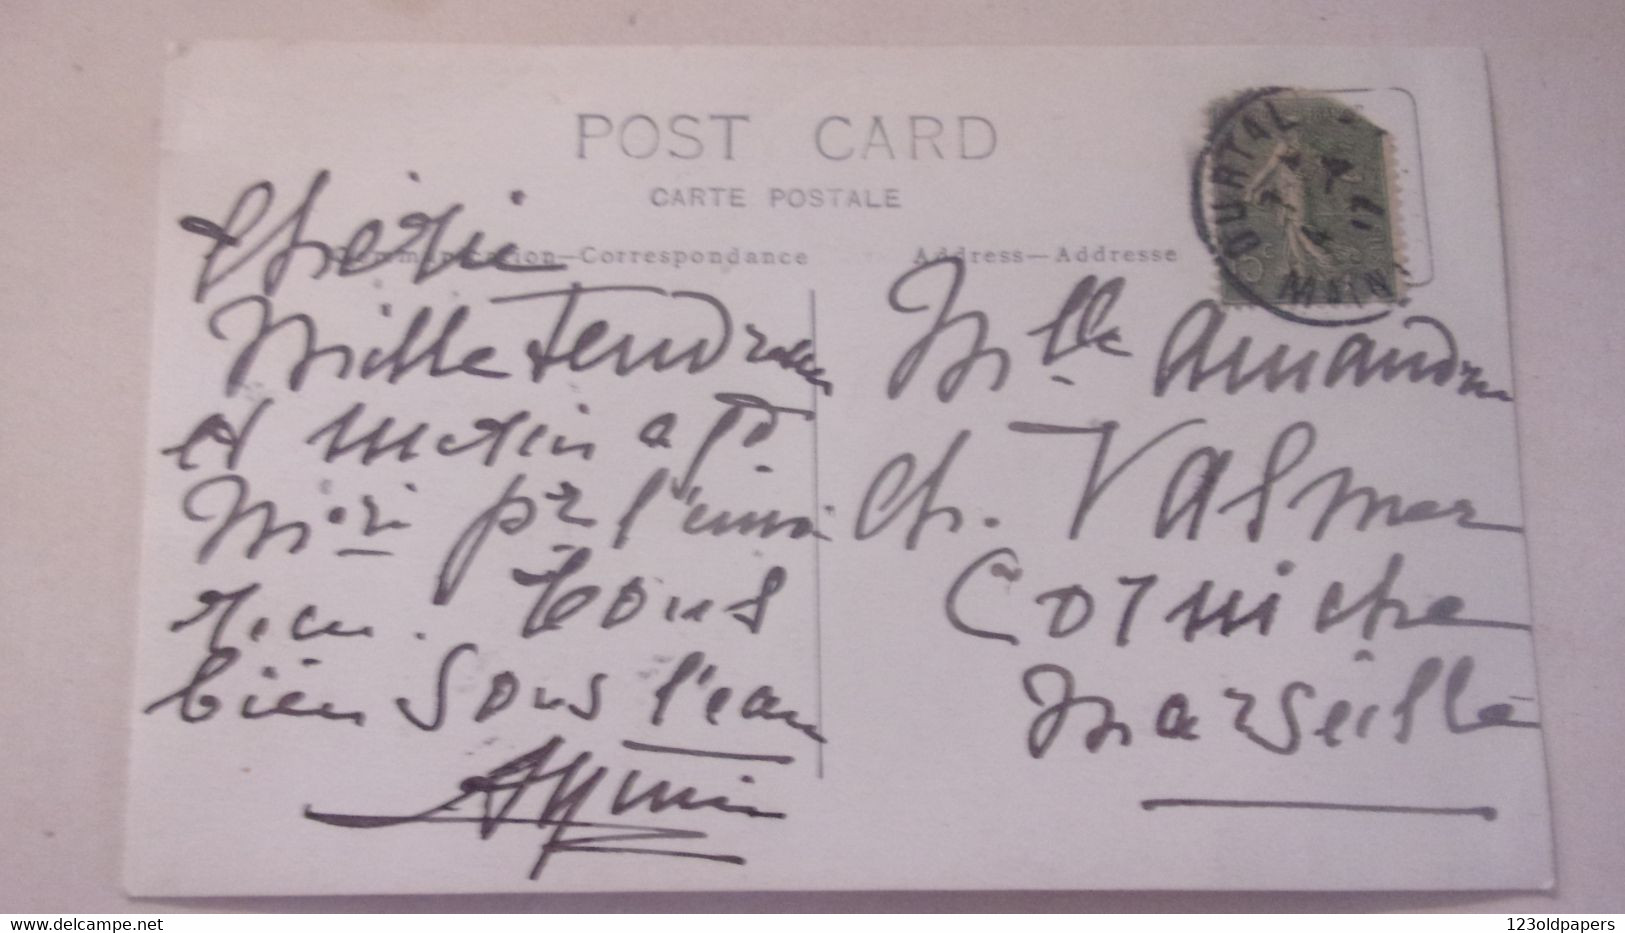 POST CARD
CARTE POSTALE
Communication—Correspondance
Address—Addresse
DURTAL
7
4
17
15c
Chérie
Mille Tendresses
et merci a
Mci pr l'envoi
Tous
bien sous l'eau
Mlle Amandine
Ch. Valmer
Corniche
Marseille
delcampe.net
123oldpapers